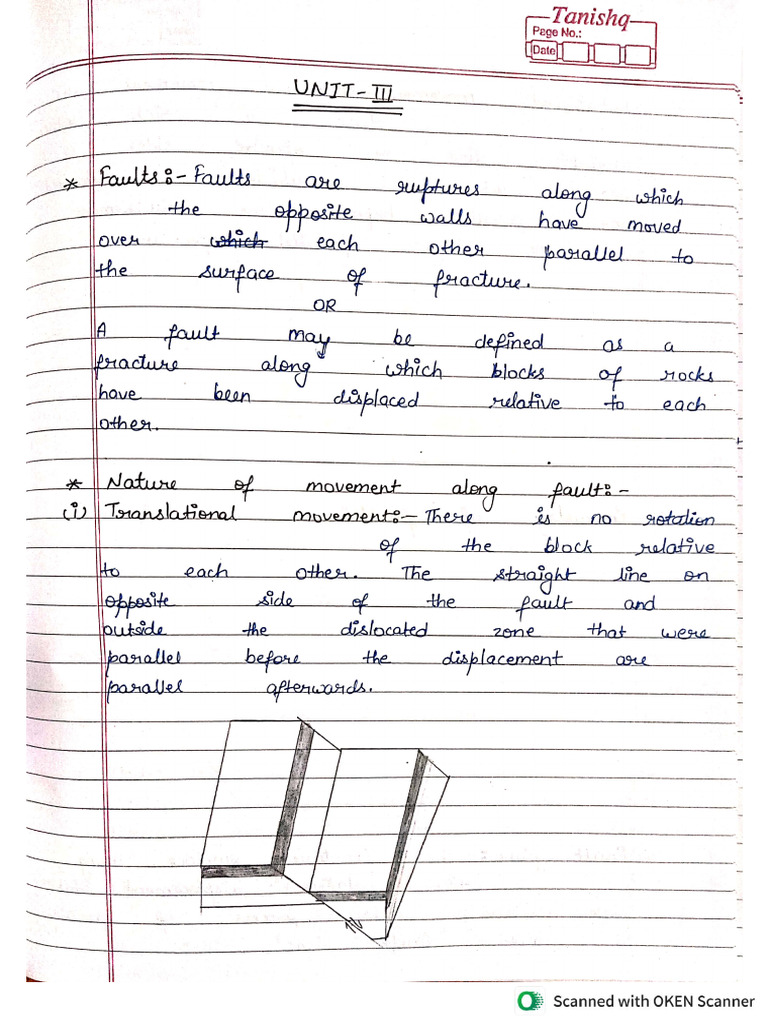 Tanishq
Page No.:
Date
UNIT-III
* Faults:- Faults are ruptures along which
the opposite walls have moved
over which each other parallel to
the surface of fracture.
OR
A fault may be defined as a
fracture along which blocks of rocks
have been displaced relative to each
other.
* Nature of movement along fault:-
(i) Translational movement:- There is no rotation
of the block relative
to each other. The straight line on
opposite side of the fault and
outside the dislocated zone that were
parallel before the displacement are
parallel afterwards.
Scanned with OKEN Scanner